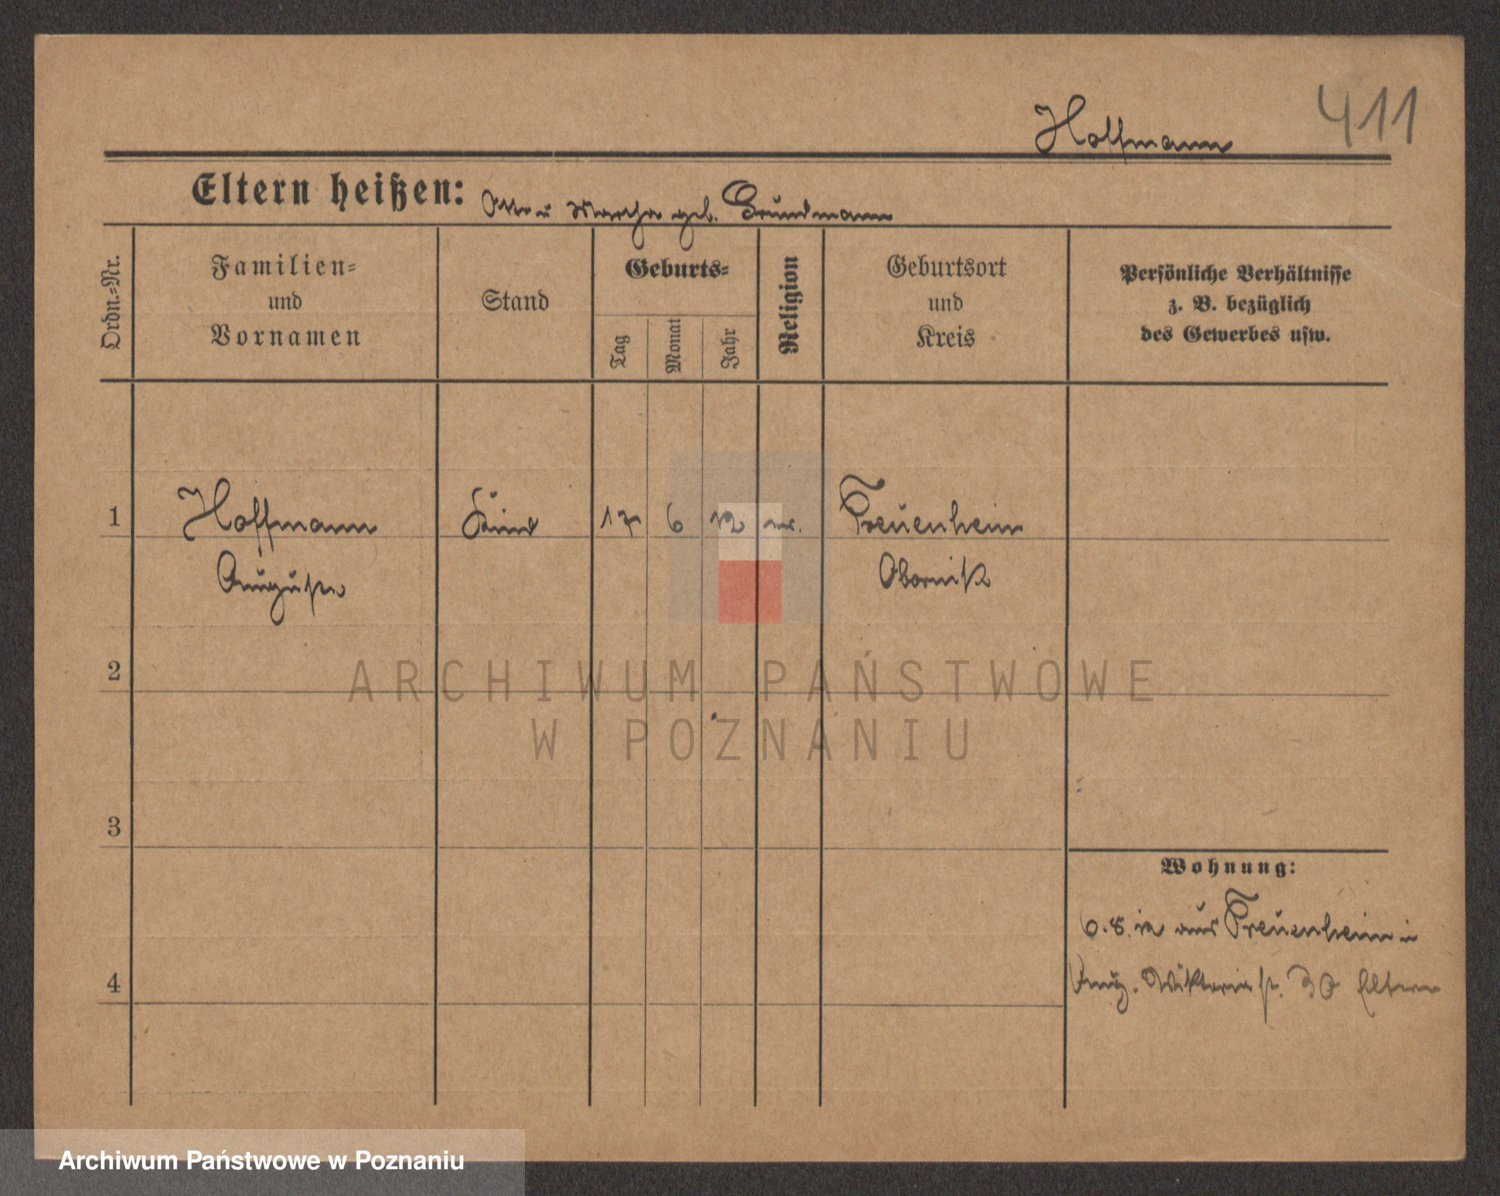 411
Hoffmann
Eltern heißen: Otto u Martha geb. Grundmann
Ordn.-Nr.
Familien-
und
Vornamen
Stand
Geburts-
Tag
Monat
Jahr
Religion
Geburtsort
und
Kreis
Persönliche Verhältnisse
z. B. bezüglich
des Gewerbes usw.
1 Hoffmann Kind 17 6 12 ev. Treuenheim
Auguste Obornik
2
ARCHIWUM PAŃSTWOWE
W POZNANIU
3
Wohnung:
6.8. aus Treuenheim in
4 Aug. Viktoria st. 30 Eltern
Archiwum Państwowe w Poznaniu